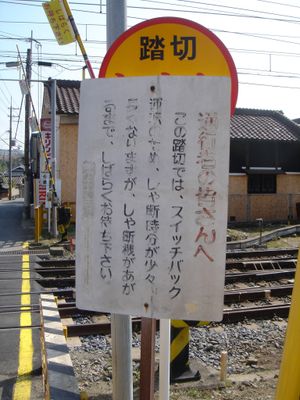 踏切
通行者の皆さんへ
この踏切では、スイッチバック
運転のため、しゃ断時分が少々
長くなりますが、しゃ断機があが
るまで、しばらくお待ち下さい